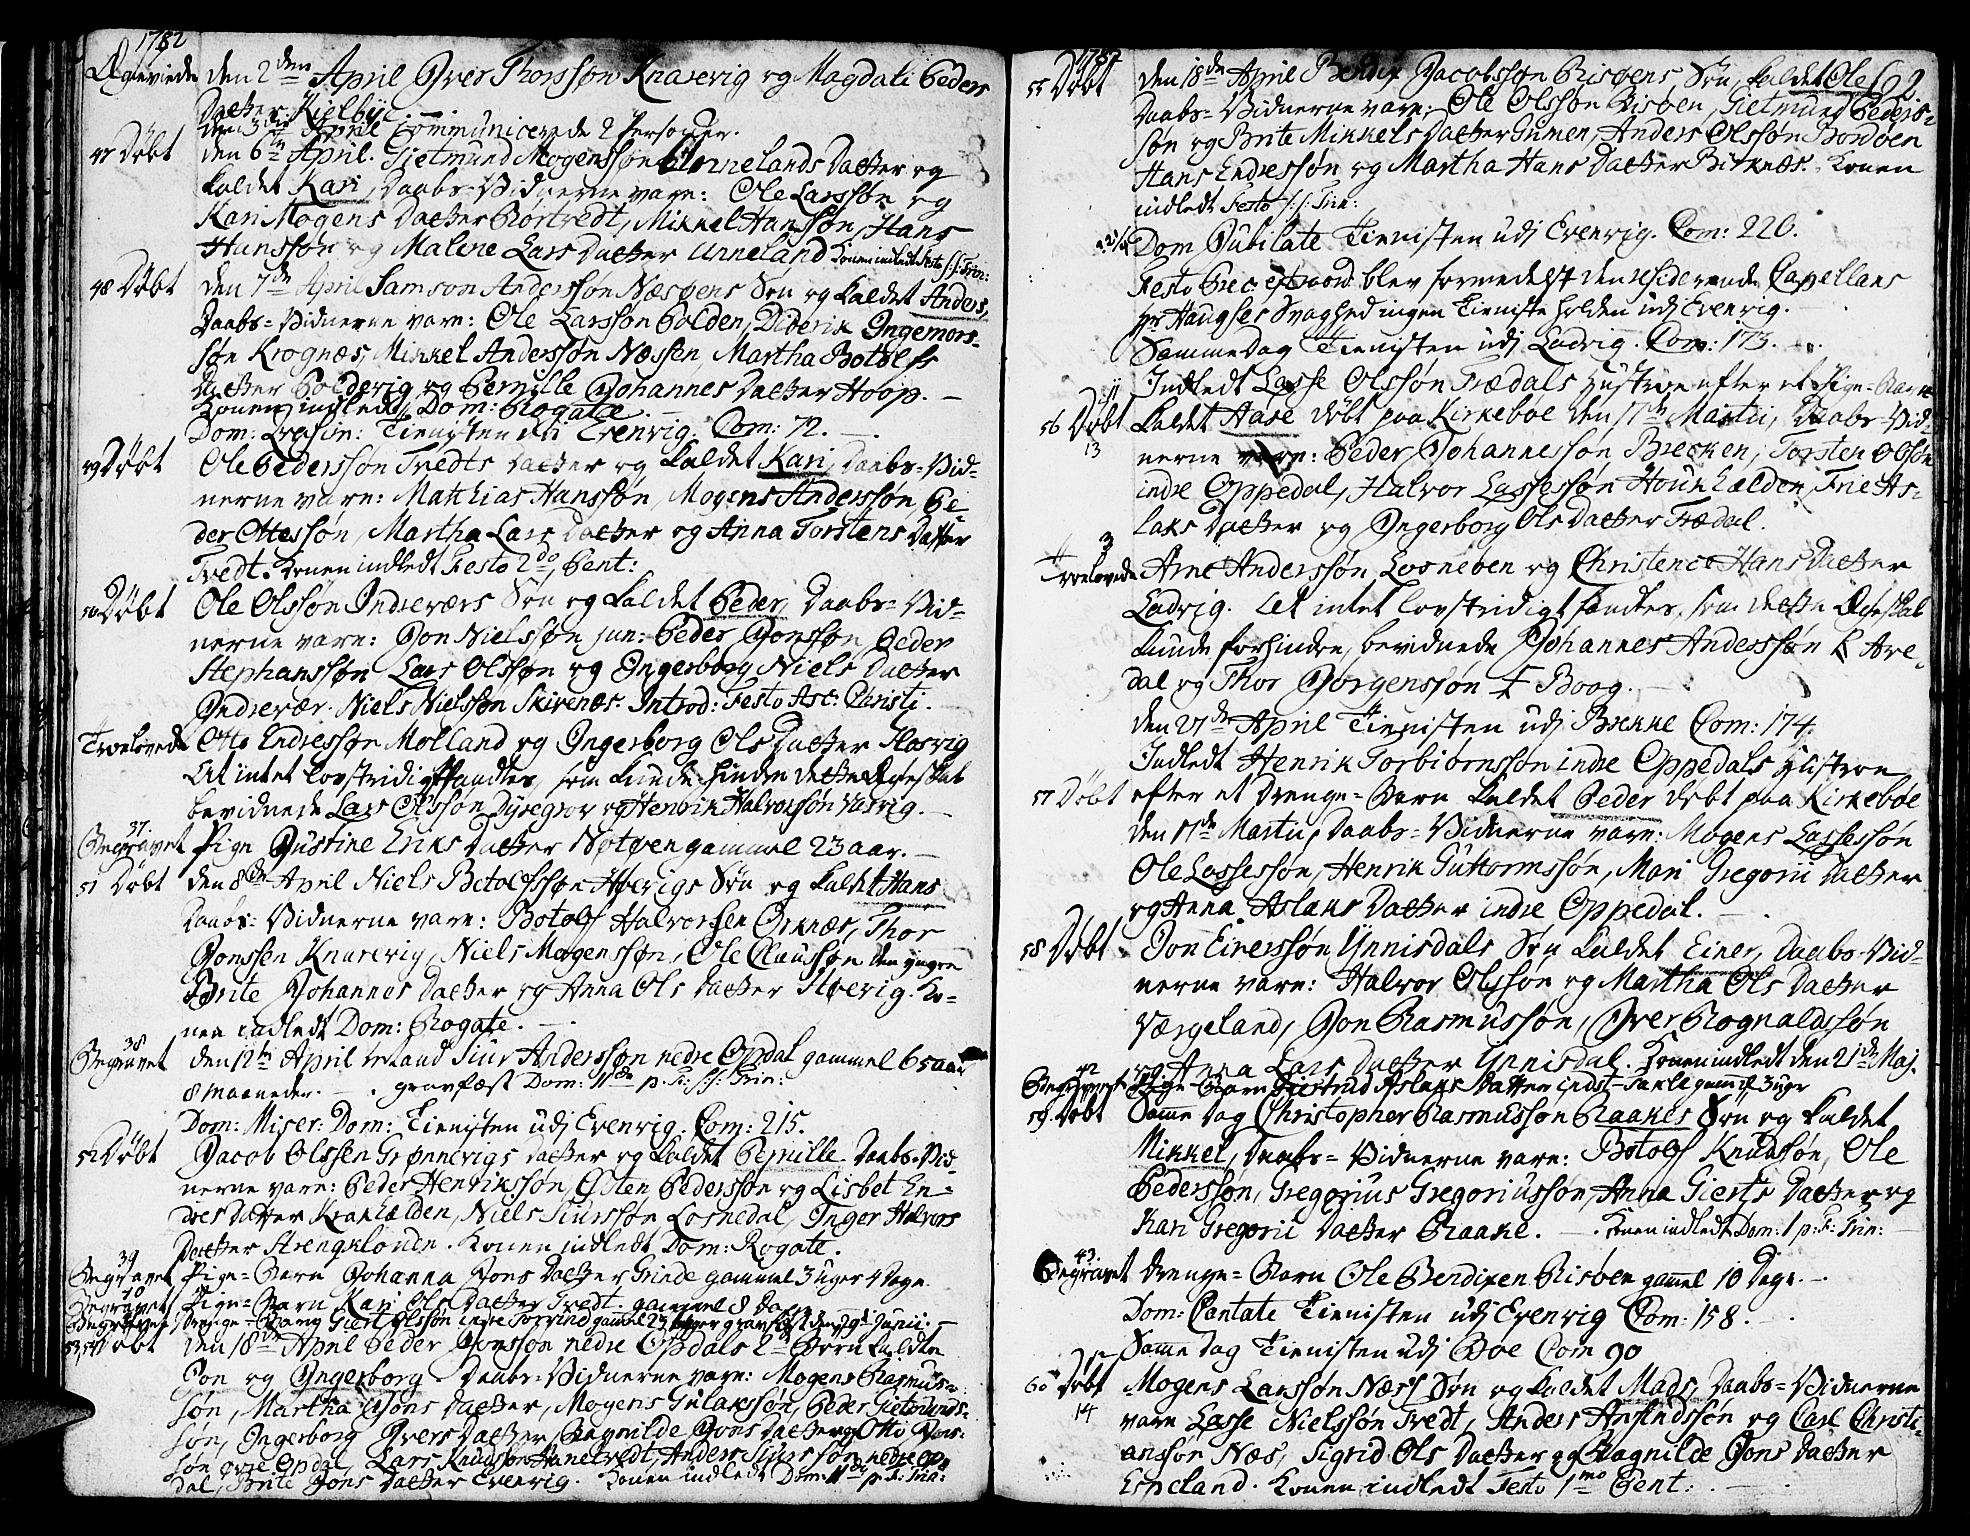 1782
Ægteviede den 2den April Iver Thorssøn Knarevig og Magdali Peders
Datter Kielbÿe.
den 3die April Communicerede 2 Personer.
47 Døbt den 6te April. Gietmund Mogenssøn Unnelands Datter og
kaldet Kari, Daabs-Vidnerne vare: Ole Larssøn og
Kari Mogens Datter Rørtvedt, Mikkel Hanssøn, Hans
Hanssøn og Malene Lars Datter Unneland Konen indledt Festo S:S: Trin:
48 Døbt den 7de April Samson Anderssøn Næsøens Søn og kaldet Anders,
Daabs-Vidnerne vare: Ole Larssøn Polden, Diderik Ingemors-
søn Krognæs, Mikkel Anderssøn Næssen, Martha Botolfs
Datter Polderig og Pernille Johannes Datter Hoop.
Konen indledt Dom: Rogate.
Dom: Qvasim: Tienisten udi Evenvig. Com: 72.
49 Døbt Ole Pederssøn Tvedts Datter og kaldet Kari, Daabs-Vid-
nerne vare: Mathias Hanssøn, Mogens Anderssøn, Pe-
der Ottessøn, Martha Lars Datter og Anna Torstens Datter
Tvedt. Konen indledt Festo 2do Pent:
50 Døbt Ole Olssøn Indreværs Søn og kaldet Peder, Daabs-Vid-
nerne vare: Jon Nielssøn jun: Peder Jonssøn, Peder
Stephanssøn Lars Olssøn og Ingerborg Niels Datter
Indrevær. Niels Nielssøn Skivenæs. Introd: Festo Asc: Christi.
Troelovede Otto Endressøn Molland og Ingerborg Ols Datter Flosvig
At intet lovstridigt fandtes, som kunde hindre dette Ægteskab
bevidnede Lars Olssøn Dyregrov og Henrik Halvorssøn Vasvig.
37.
Begravet Pige Justine Eriks Datter Nøtøen gammel 23 aar.
51 Døbt den 8de April Niels Botolfssøn Høevigs Søn og kaldet Hans
Daabs-Vidnerne vare: Botolf Halvorssen Ornnæs, Thor
Jonssen Knarevig, Niels Mogenssøn, Ole Claussøn den yngre
Brite Johannes Datter og Anna Ols Datter Høevig. Ko-
nen indledt Dom: Rogate.
38
Begravet den 12te April Siur Anderssøn nedre Opdal gammel 65 aar
8 maaneder. gravfæst Dom: 11te p. F: S:S: Trin:
Dom: Miser: Dom: Tienisten udi Evenvig. Com: 215.
52 Døbt Jacob Olssen Grønnevigs Datter og kaldet Pernille Daabs-Vid-
nerne vare: Peder Henrikssøn, Østen Pederssøn og Lisbet En-
dres Datter Krakhælden, Niels Siurssøn Losnedal, Inger Halvors
Datter Strengklouen. Konen indledt Dom: Rogate.
39
Begravet Pige-Barn Johanna Jons Datter Grinde gammel 3 uger 4 Dage.
40
Begravet Pige-Barn Kari Ols Datter Tvedt. gammel 8 Dage
Begravet Drenge-Barn Giert Olssøn indre gamel 23 uger gravfæst den 29de Junii.
53, 54 Døbt den 18de April Peder Jonssøn nedre Opdals 2de Børn kaldte
Jon og Ingerborg Daabs-Vidnerne vare: Mogens Rasmus-
søn, Martha Jons Datter, Mogens Gulakssøn, Peder Gietmunds-
søn, Ingerborg Ivers Datter, Ragnilde Jons Datter og Otto Jons-
søn øvre Opdal, Lars Knudssøn Hanetvedt, Anders Siurssøn nedre Op-
dal, Brite Jons Datter Evenvig. Konen indledt Dom: 11te p: F: Trin:
1782
62.
55 Døbt den 18de April Bendix Jacobssøn Risøens Søn, kaldet Ole
Daabs-Vidnerne vare: Ole Olssøn Risøen, Gietmund Peders-
søn og Brite Mikkels Datter Grinen, Anders Olssøn Bordøen
Hans Endressøn og Martha Hans Datter Birknæs. Konen
indledt Festo S:S: Trin:
Dom Jubilate Tienisten udj Evenvig. Com: 220.
Festo Prec: extraord: blev formedelst den residerende Capellans
Hr Haugses Svaghed ingen Tieniste holden udj Evenvig.
Samme dag Tienisten udj Ladvig. Com: 173.
Indledt Lasse Olssøn Trædals Hustroe efter et Pige-Barn
56 Døbt kaldet Aase døbt paa Kirkeboe den 17de Martii, Daabs-Vid-
13
nerne vare: Peder Johannessøn Brecken, Torsten Olssøn
indre Oppedal, Halvor Lassessøn Houkhælden, Frie As-
laks Datter og Ingerborg Ols Datter Trædal.
3
Troelovede Arne Anderssøn Losneben og Christence Hans Datter
Ladvig. At intet lovstridigt fandtes, som dette Ægteskab
kunde forhindre, bevidnede Johannes Anderssøn Are-
dal og Thor Jorgenssøn Boog.
den 27de April Tienisten udj Brekke Com: 174.
Indledt Henrik Torbiørnssøn indre Oppedals Hustroe
57 Døbt efter et Drenge-Barn kaldet Peder døbt paa Kirkebøe
den 17de Martii, Daabs-Vidnerne vare: Mogens Lassessøn
Ole Lassessøn, Henrik Guttormssøn, Mari Gregorii Datter
og Anna Aslaks Datter indre Oppedal.
58 Døbt Jon Einerssøn Ÿnnisdals Søn kaldet Einer, Daabs-Vid-
nerne vare: Halvor Olssøn og Martha Ols Datter
Værgeland, Jon Rasmussøn, Iver Rognaldssøn
og Anna Lars Datter Ÿnnisdal. Konen indledt den 21de Maj.
42
Begravet Pige-Barn Giertrud Aslaks Datter indst-Takle gamel 3 uger
59. Døbt Same dag Christopher Rasmussøn Raakes Søn og kaldet
Mikkel, Daabs-Vidnerne vare: Botolf Knudssøn, Ole
Pederssøn, Gregorius Gregoriussøn, Anna Gierts Datter og
Kari Gregorii Datter Raake. Konen indledt Dom: 1 p: F: Trin:
43.
Begravet Drenge-Barn Ole Bendixen Risøen gamel 10 Dage.
Dom: Cantate Tienisten udj Evenvig Com: 158.
Same dag Tienisten udj Boe Com 90
60 Døbt Mogens Larssøn Næss Søn og kaldet Mads, Daabs-Vidnerne
14
vare Lasse Nielssøn Tvedt, Anders Anfindssøn og Carl Christi-
anssøn Næs, Sigrid Ols Datter og Ragnilde Jons Datter
Espeland. Konen indledt Festo 1mo Pent: